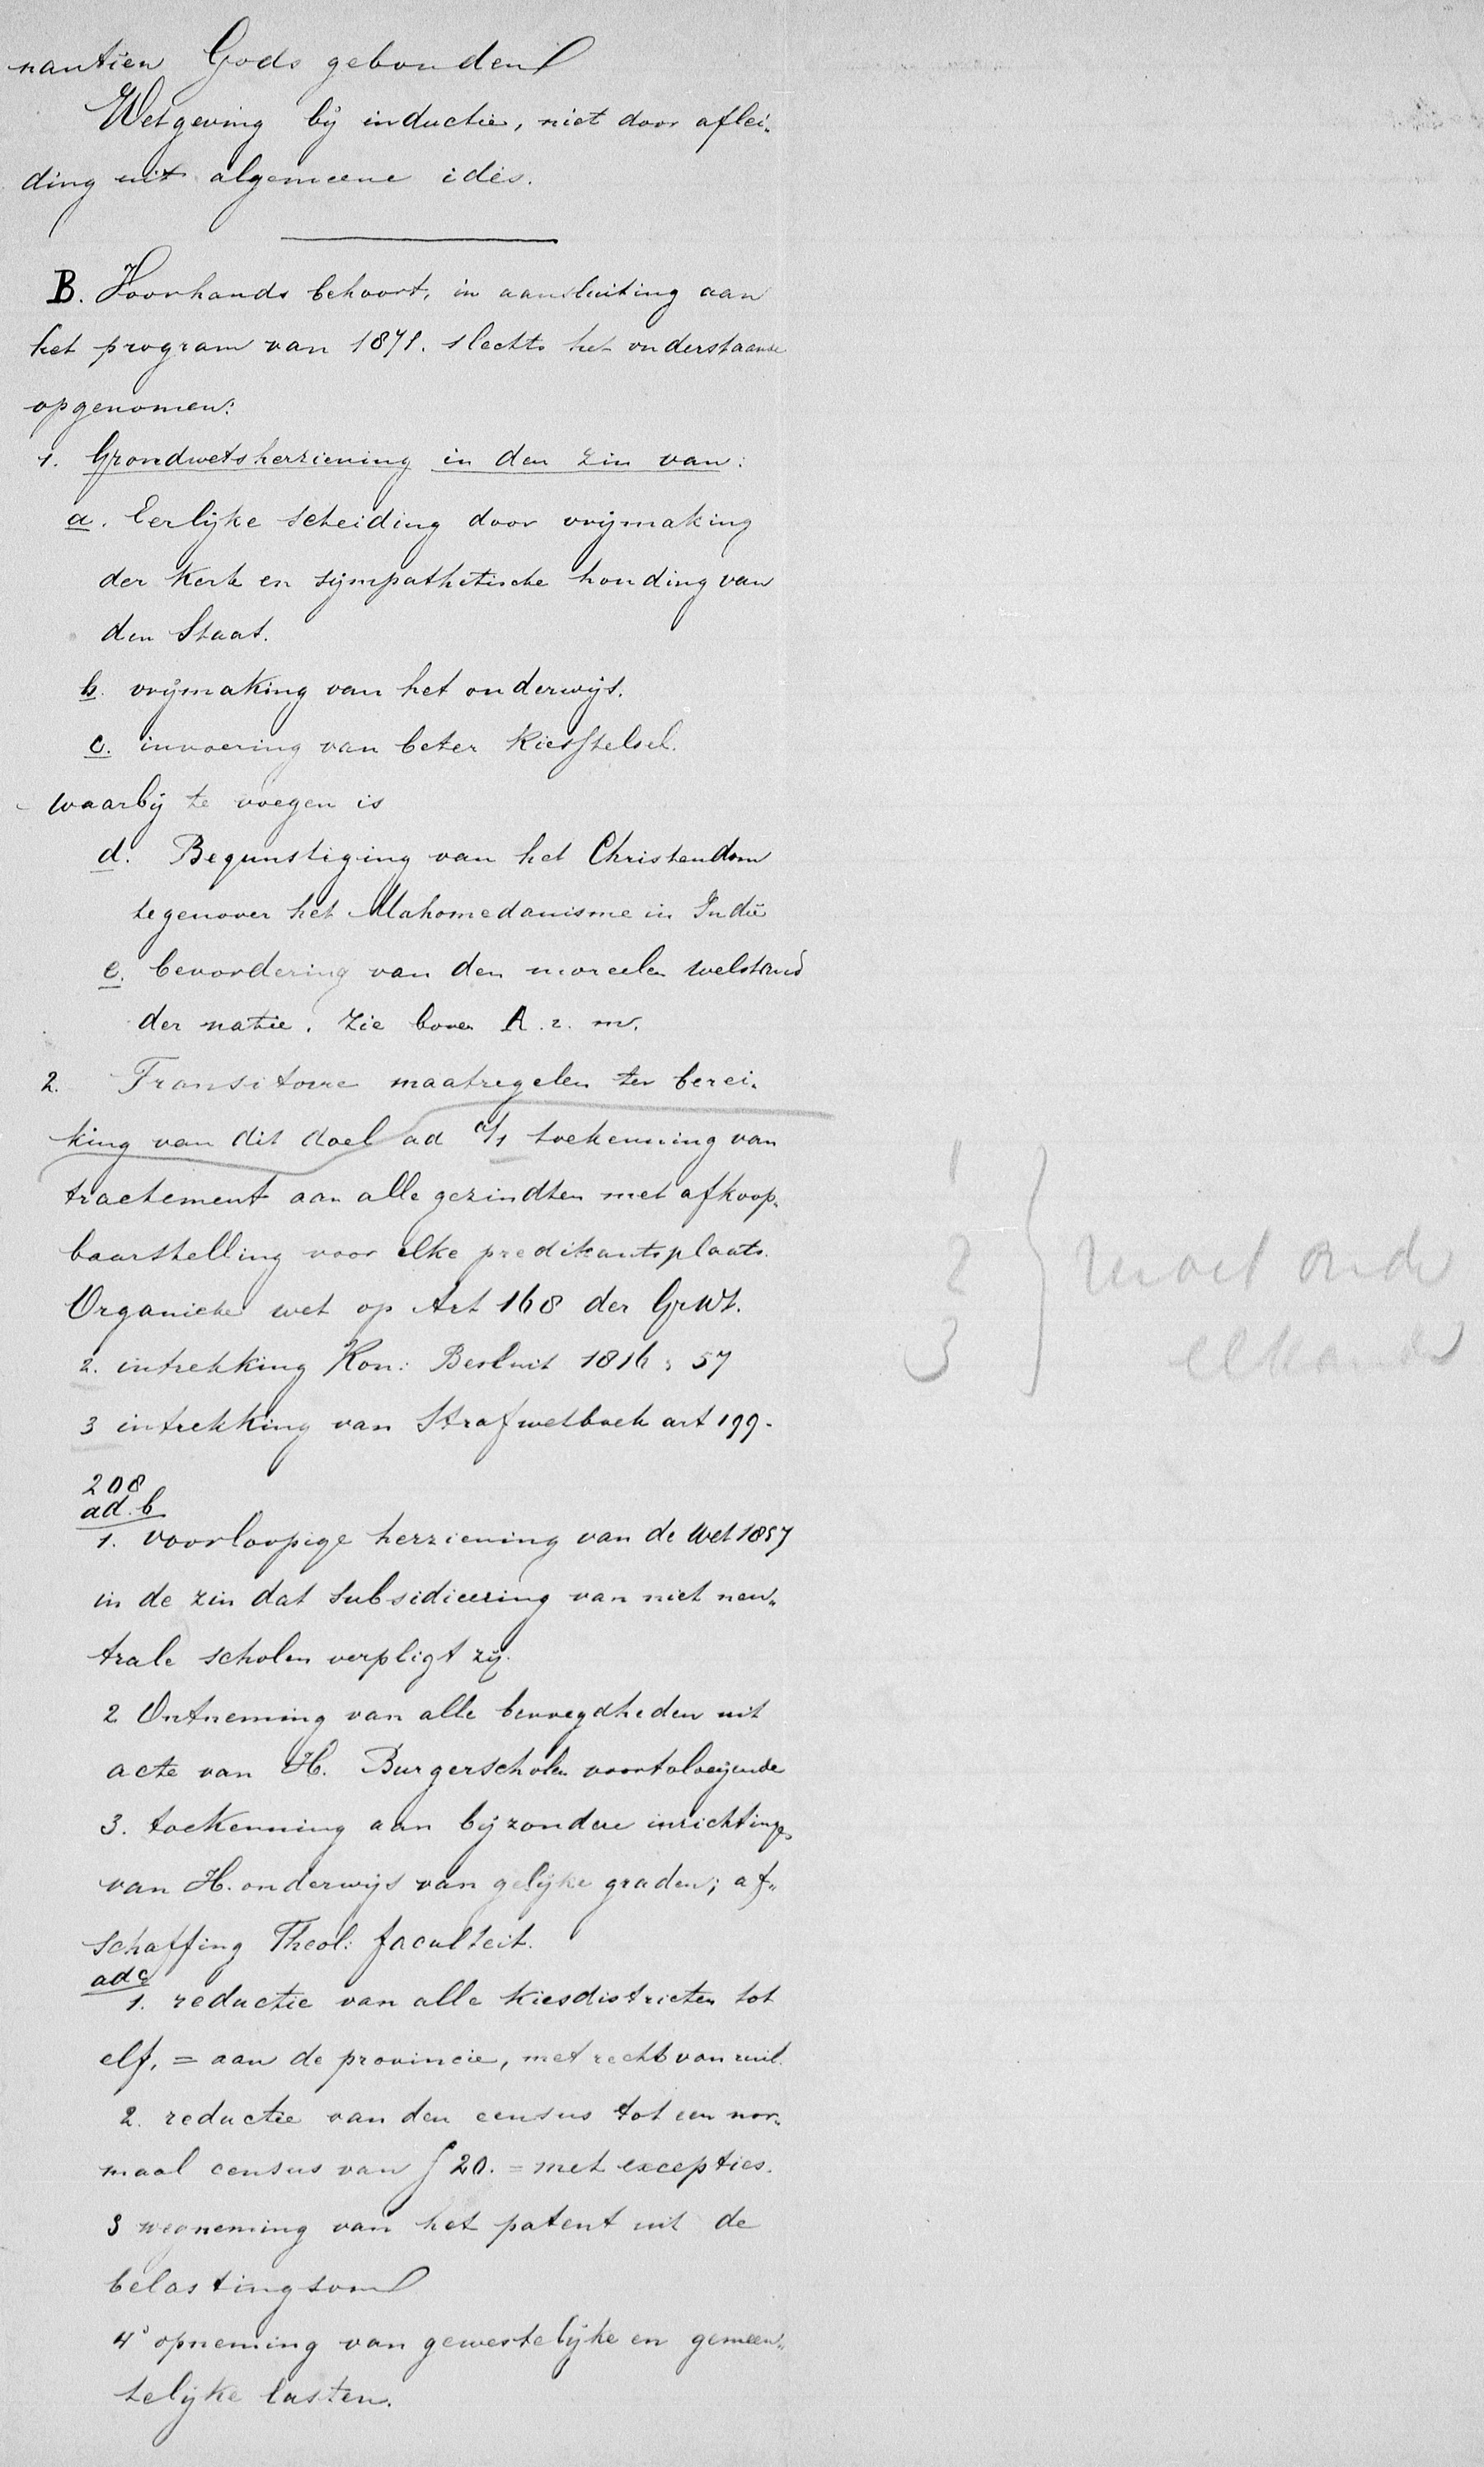 nantien Gods gebonden
Wetgeving bij inductie, niet door aflei-
ding uit algemeene idés.
B. Voorhands behoort, in aansluiting aan
het program van 1871. slechts het onderstaande
opgenomen:
1. Grondwetsherziening in den zin van:
a. Eerlijke scheiding door vrijmaking
der Kerk en sympathetische houding van
den Staat.
b. vrijmaking van het onderwijs.
c. invoering van beter Kiesstelsel.
waarbij te voegen is
d. Begunstiging van het Christendom
tegenover het Mahomedanisme in Indië
e. bevordering van den moreelen welstand
der natie. Zie boven A. 2. m.
2. Transitoire maatregelen ter berei-
king van dit doel ad a/1 toekenning van
tractement aan alle gezindten met afkoop-
baarstelling voor elke predikantsplaats.
Organieke wet op Art 168 der GrWt.
2. intrekking Kon: Besluit 1816 : 57
3 intrekking van Strafwetboek art 199-
208
ad. b
1. voorloopige herziening van de Wet 1857
in de zin dat subsidieering van niet neu-
trale scholen verpligt zij.
2 Ontneming van alle bevoegdheden uit
acte van H. Burgerscholen voortvloeijende
3. toekenning aan bijzondere inrichtingen
van H. onderwijs van gelijke graden; af-
schaffing Theol: faculteit.
ad c
1. reductie van alle kiesdistricten tot
elf, = aan de provincie, met recht van ruil.
2. reductie van den census tot een nor-
maal census van ƒ 20. = met excepties.
3 wegneming van het patent uit de
belastingsom
4° opneming van gewestelijke en gemeen-
telijke lasten.
1
2
3
moet onder
elkander